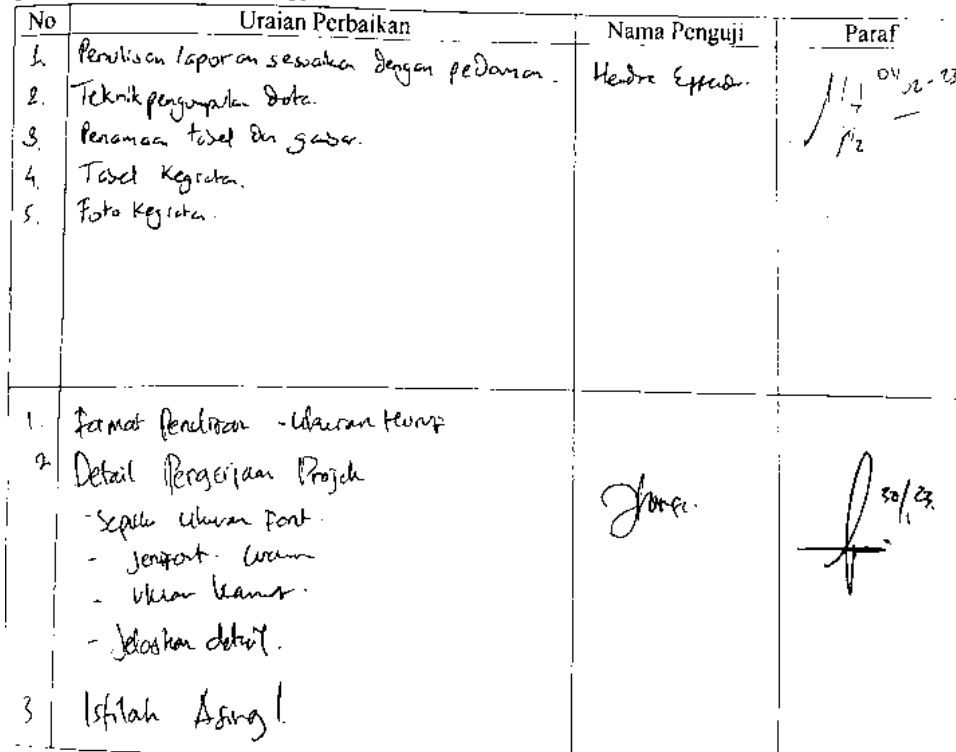 No Uraian Perbaikan Nama Penguji Paraf
1. Penulisan laporan sesuaikan dengan pedoman. Hendra Effendi.
2. Teknik pengumpulan data.
3. Penamaan tabel dan gambar.
4. Tabel Kegiatan.
5. Foto Kegiatan.
1. Format Penulisan - Ukuran Huruf
2 Detail Pengerjaan Projek
30/1 23.
- ukuran Font.
- warna
- ukuran
- Jelaskan detail.
3 Istilah Asing!